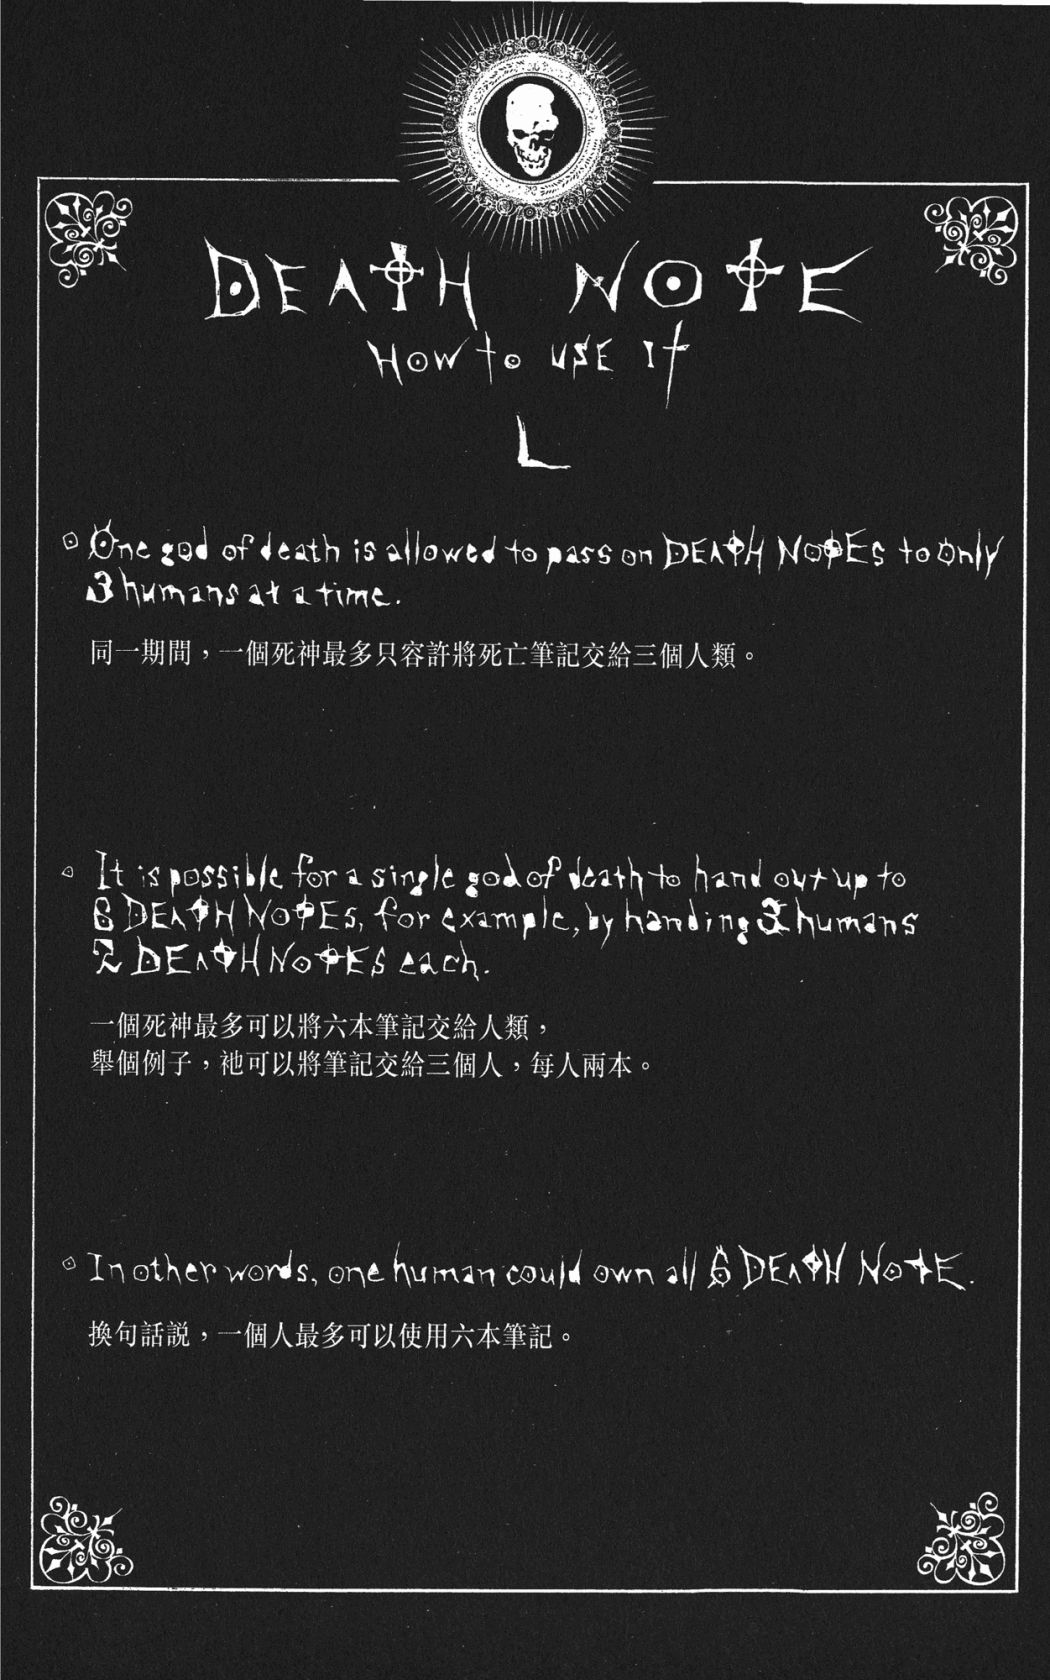 DEATH NOTE
HOW to USE It
L
One god of death is allowed to pass on DEATH NOTES to only
3 humans at a time.
同一期間，一個死神最多只容許將死亡筆記交給三個人類。
It is possible for a single god of death to hand out up to
6 DEATH NOTES, for example, by handing 3 humans
2 DEATH NOTES each.
一個死神最多可以將六本筆記交給人類，
舉個例子，祂可以將筆記交給三個人，每人兩本。
In other words, one human could own all 6 DEATH NOTE.
換句話説，一個人最多可以使用六本筆記。